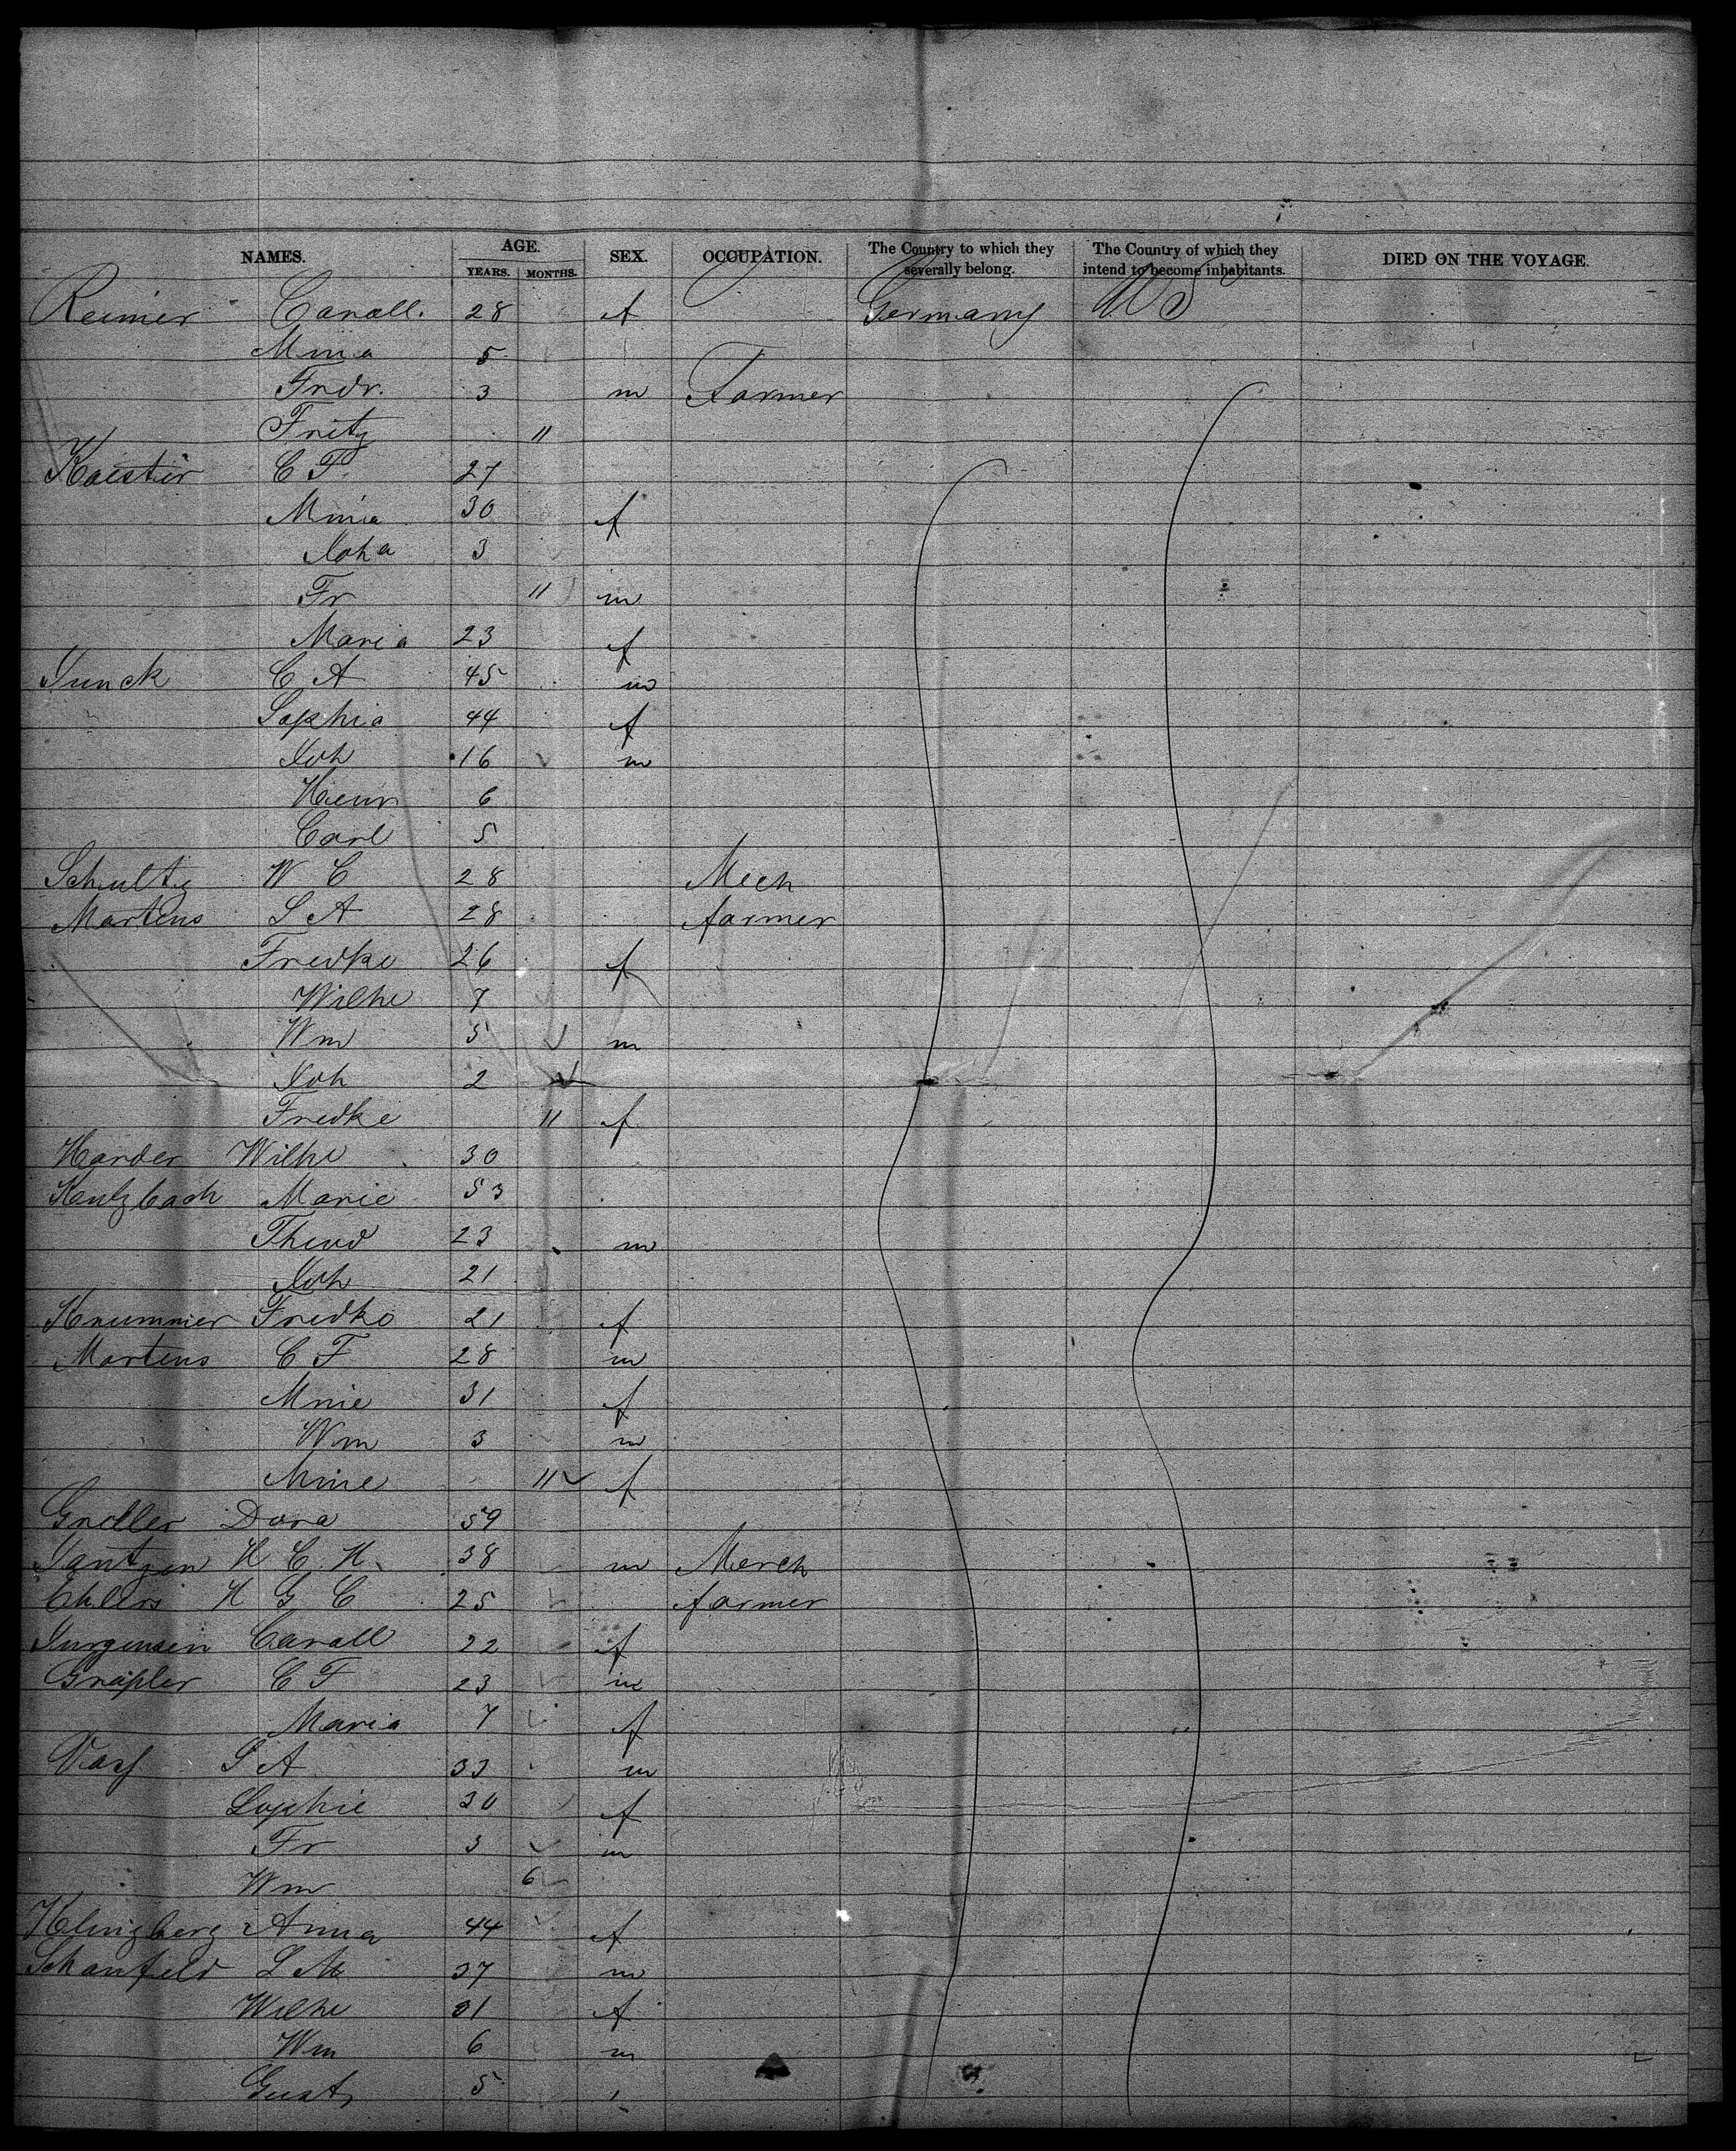 NAMES. AGE. YEARS. MONTHS. SEX. OCCUPATION. The Country to which they severally belong. The Country of which they intend to become inhabitants. DIED ON THE VOYAGE.
Reimer Caroll. 28 f Germany US
Mina 5
Frdr. 3 m Farmer
Fritz 11
Koester C F 27
Mina 30 f
Joha 3
Fr 11 m
Maria 23 f
Junck C A 45 m
Sophia 44 f
Joh 16 m
Heinr 6
Carl 5
Schultz W C 28 Mech
Martens S A 28 farmer
Fredke 26 f
Wilhe 7
Wm 5 m
Joh 2
Fredke 11 f
Harder Wilhe 30
Marie 53
Theod 23 m
Joh 21
Krummer Fredke 21 f
Martens C F 28 m
Mnie 31 f
Wm 3 m
Mine 11 f
Groller Dora 59
Jantzen H C H. 38 m Merch
Ehlers H G C 25 farmer
Jurgensen Caroll 22 f
Grapler C F 23 m
Maria 7 f
S A 33 m
Sophie 30 f
Fr 3 m
Wm 6
Klingberg Anna 44 f
Schonfeld L M 37 m
Wilhe 31 f
Wm 6 m
Gust 5